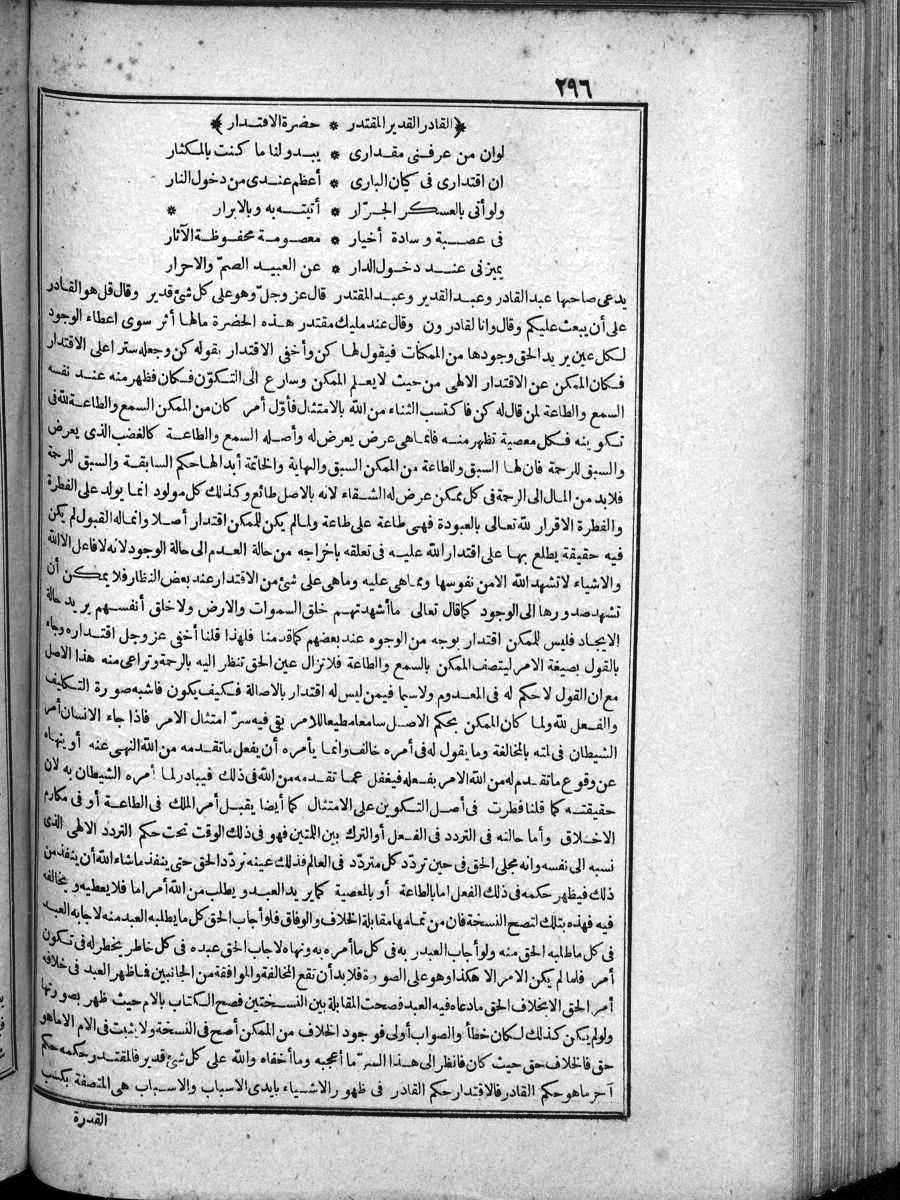 ٢٩٦
﴿القادر القدير المقتدر * حضرة الاقتدار﴾
لو ان من عرفنى مقدارى * يبدو لنا ما كنت بالمكثار
ان اقتدارى فى كيان البارى * أعظم عندى من دخول النار
ولو أتى بالعسكر الجرّار * أتيته به وبالابرار *
فى عصبة وسادة أخيار * معصومة محفوظة الآثار
يميزنى عند دخول الدار * عن العبيد الصمّ والاحرار
يدعى صاحبها عبد القادر وعبد القدير وعبد المقتدر قال عز وجلّ وهو على كل شئ قدير وقال قل هو القادر
على أن يبعث عليكم وقال وانا لقادرون وقال عند مليك مقتدر هذه الحضرة مالها أثر سوى اعطاء الوجود
لكل عين يريد الحق وجودها من الممكنات فيقول لها كن وأخفى الاقتدار بقوله كن وجعله سترا على الاقتدار
فكان الممكن عن الاقتدار الالهى من حيث لا يعلم الممكن وسارع الى التكوّن فكان فظهر منه عند نفسه
السمع والطاعة لمن قال له كن فاكتسب الثناء من الله بالامتثال فأوّل أمر كان من الممكن السمع والطاعة لله فى
تكوينه فكل معصية تظهر منه فانما هى عرض يعرض له وأصله السمع والطاعة كالغضب الذى يعرض
والسبق للرحمة فان لها السبق وللطاعة من الممكن السبق والنهاية والخاتمة أبدا لها حكم السابقة والسبق للرحمة
فلا بد من المآل الى الرحمة فى كل ممكن عرض له الشقاء لانه بالاصل طائع وكذلك كل مولود انما يولد على الفطرة
والفطرة الاقرار لله تعالى بالعبودة فهى طاعة على طاعة ولما لم يكن للممكن اقتدار أصلا وانما له القبول لم يكن
فيه حقيقة يطلع بها على اقتدار الله عليه فى تعلقه باخراجه من حالة العدم الى حالة الوجود لانه لا فاعل الا الله
والاشياء لا تشهد الله الا من نفوسها ومما هى عليه وما هى على شئ من الاقتدار عند بعض النظار فلا يمكن أن
تشهد صدورها الى الوجود كما قال تعالى ما أشهدتهم خلق السموات والارض ولا خلق أنفسهم يريد حالة
الايجاد فليس للممكن اقتدار بوجه من الوجوه عند بعضهم كما قدمنا فلهذا قلنا أخفى عز وجل اقتداره وجاء
بالقول بصيغة الامر ليتصف الممكن بالسمع والطاعة فلا تزال عين الحق تنظر اليه بالرحمة وتراعى منه هذا الاصل
مع ان القول لا حكم له فى المعدوم ولا سيما فيمن ليس له اقتدار بالاصالة فكيف يكون فاشبه صورة التكليف
والفعل لله ولما كان الممكن بحكم الاصل سامعا مطيعا للامر بقى فيه سرّ امتثال الامر فاذا جاء الانسان أمر
الشيطان فى لمته بالمخالفة وما يقول له فى أمره خالف وانما يأمره أن يفعل ما تقدمه من الله النهى عنه أو ينهاه
عن وقوع ما تقدم له من الله الامر بفعله فيغفل عما تقدمه من الله فى ذلك فيبادر لما أمره الشيطان به لان
حقيقته كما قلنا فطرت فى أصل التكوين على الامتثال كما أيضا يقبل أمر الملك فى الطاعة أو فى مكارم
الاخلاق وأما حالته فى التردد فى الفعل أو الترك بين اللمتين فهو فى ذلك الوقت تحت حكم التردد الالهى الذى
نسبه الى نفسه وانه مجلى الحق فى حين تردّد كل متردّد فى العالم فذلك عينه تردّد الحق حتى ينفذ ما شاء الله أن ينفذ من
ذلك فيظهر حكمه فى ذلك الفعل اما بالطاعة أو بالمعصية كما يريد العبد ويطلب من الله أمرا ما فلا يعطيه ويخالفه
فيه فهذه بتلك لتصح النسخة فان من تمامها مقابلة الخلاف والوفاق فلو أجاب الحق كل ما يطلبه العبد منه لاجابه العبد
فى كل ما طلبه الحق منه ولو أجاب العبد ربه فى كل ما أمره به ونهاه لاجاب الحق عبده فى كل خاطر يخطر له فى تكون
أمر فلما لم يكن الامر الا هكذا وهو على الصورة فلا بد أن تقع المخالفة والموافقة من الجانبين فما ظهر العبد فى خلافه
أمر الحق الا بخلاف الحق ما دعاه فيه العبد فصحت المقابلة بين النسختين فصح الكتاب بالام حيث ظهر بصورتها
ولو لم يكن كذلك لكان خطأ والصواب أولى فوجود الخلاف من الممكن أصح فى النسخة ولا يثبت فى الام الا ما هو
حق فالخلاف حق حيث كان فانظر الى هذا السرّ ما أعجبه وما أخفاه والله على كل شئ قدير فالمقتدر حكمه حكم
آخر ما هو حكم القادر فالاقتدار حكم القادر فى ظهور الاشياء بايدى الاسباب والاسباب هى المتصفة بكسب
القدرة